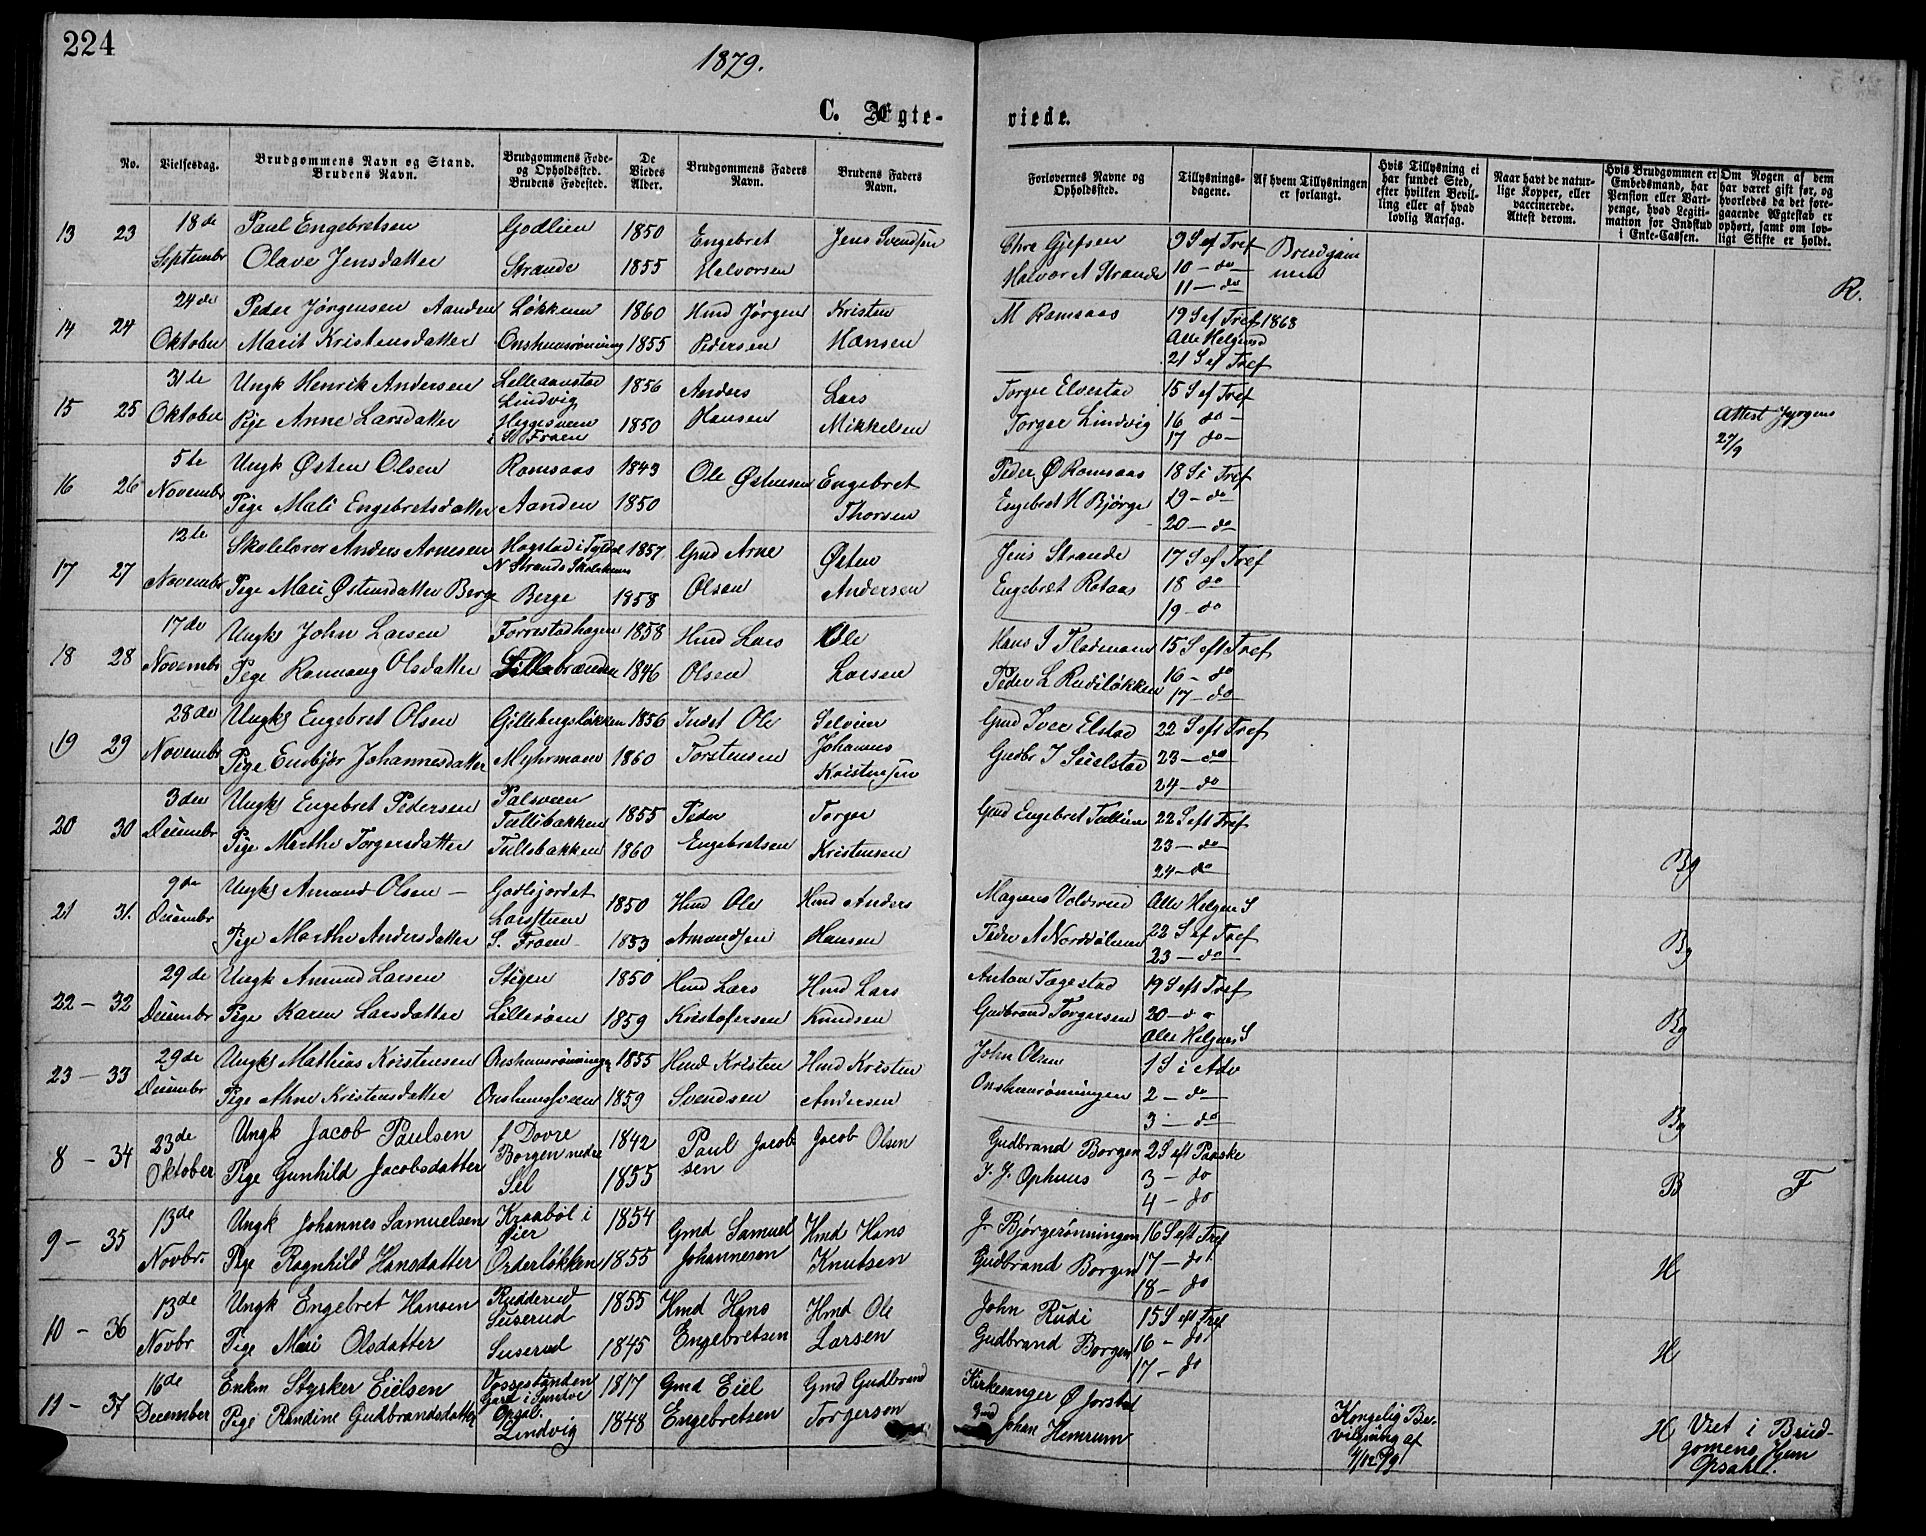 224
1879.
C. Ægte-
viede.
No.
Vielsesdag.
Brudgommens Navn og Stand.
Brudens Navn.
Brudgommens Føde-
og Opholdssted.
Brudens Fødested.
De
Viedes
Alder.
Brudgommens Faders
Navn.
Brudens Faders
Navn.
Forlovernes Navne og
Opholdssted.
Tillysnings-
dagene.
Af hvem Tillysningen
er forlangt.
Hvis Tillysning ei
har fundet Sted,
efter hvilken Bevil-
ling eller af hvad
lovlig Aarsag.
Naar havt de natur-
lige Kopper, eller
vaccinerede.
Attest derom.
Hvis Brudgommen er
Embedsmand, har
Pension eller Vart-
penge, hvad Legiti-
mation for Indskud
i Enke-Cassen.
Om Nogen af dem
har været gift før, og
hvorledes da det fore-
gaaende Ægteskab er
ophørt, samt om lov-
ligt Skifte er holdt.
13 23 18de Paul Engebretsen Godlien 1850 Engebret Jens Svendsen
Septembr Olave Jensdatter Strande 1855 Halvorsen
Chre Gjefsen 9 S ef Tref Brudgom
Halvor A Strande 10 - do men
11 - do
R.
14 24 24de Peder Jørgensen Aanden Løkken 1860 Hmd Jørgen Kristen
Oktober Marit Kristensdatter Onshuusrønning 1855 Pedersen Hansen
M Ramsaas 19 S ef Tref 1868
Alle Helgensd
21 S ef Tref
15 25 31te Ungk Henrik Andersen Lilleaanstad 1856 Anders Lars
Lindvig
Oktober Pige Anne Larsdatter Heggesveen 1850 Hansen Mikkelsen
i S Froen
Torger Elvestad 15 S ef Tref
Torger Lindvig 16 do -
17 do -
Attest
27/9
16 26 5te Ungk Østen Olsen Ramsaas 1843 Ole Østensen Engebret
Novembr Pige Mali Engebretsdatter Aanden 1850 Thorsen
Peder Ø Ramsaas 18 S e Tref
Engebret H Bjørge 29 - do
20 - do
17 27 12te Skolelærer Anders Arnesen Hogstad i 1857 Gmd Arne Østen
N Strands Skolehuus
Novembr Pige Mari Østensdatter Berge Berge 1858 Olsen Andersen
Jens Strande 17 S ef Tref
Engebret Rotaas 18 do
19 - do
18 28 17de Ungk John Larsen Forrestadhagen 1858 Hmd Lars Ole
Novembr Pige Rannaug Olsdatter Lillebrænden 1846 Olsen Larsen
Hans J Flatmoen 15 S eft Tref
Peder L Rudiløkken 16 - do
17 - do
19 29 28de Ungk Engebret Olsen Gillebergsløkken 1856 Indst Ole Selveier
Novembr Pige Embjør Johannesdatter Myhrmoen 1860 Torstensen Johannes
Kristensen
Gmd Iver Elstad 22 S eft Tref
Gudbr J Suelstad 23 - do
24 - do
20 30 3den Ungk Engebret Pedersen Palsveen 1855 Peder Torger
Tullibakken
Decembr Pige Marthe Torgersdatter Tullebakken 1860 Engebretsen Kristensen
Gmd Engebret Tullien 22 S eft Tref
23 - do
24 - do
Bg
21 31. 9de Ungk Amund Olsen - Godlsjordet 1850 Hmd Ole Hmd Anders
Decembr Larsstuen
Pige Marthe Andersdatter S. Froen 1853 Amundsen Hansen
Magnus Voldsrud Alle Helgen S
Peder A Norddølum 22 S ef Tref
23 - do
Bg
22 - 32 29de Ungk Amund Larsen Stigen 1850 Hmd Lars Hmd Lars
Decembr Pige Karen Larsdatter Lillerøen 1859 Kristofersen Knudsen
Anton Tagestad 19 S eft Tref
Gudbrand Torgersen 20 - do
Alle Helgens S
Bg
23 - 33 29de Ungk Mathias Kristensen Onshuusrønninge 1855 Hmd Kristen Hmd Kristen
Decembr Pige Ahne Kristensdatter Onshuussveen 1859 Svendsen Andersen
John Olsen 1 S i Adv
Onshuusrønningen 2 - do
3 - do
Bg
8 - 34 23de Ungk Jacob Paulsen f Dovre 1842 Paul Jacob Jacob Olsen
Borgen nedre sen
Oktober Pige Gunhild Jacobsdatter Sel 1855
Gudbrand Borgen 2 S eft Paaske
J. J. Ophuus 3 - do
4 - do
B F
9 - 35 13de Ungk Johannes Samuelsen Kraabøl i 1854 Gmd Samuel Hmd Hans
Øier
Novbr. Pige Ragnhild Hansdatter Orderløkken 1855 Johannesen Knutsen
J. Bjørgerønningen 16 S eft Tref
Gudbrand Borgen 17 - do
18 - do
H
10 - 36 13de Ungk Engebret Hansen Rudderud 1855 Hmd Hans Hmd Ole
Suserud
Novbr Pige Mari Olsdatter Suserud 1845 Engebretsen Larsen
John Rudi 15 S eft Tref
Gudbrand Borgen 16 - do
17 - do
H
11 - 37 16de Enkm Styrker Eielsen Vossestanden 1817 Gmd Eiel Gmd Gudbrand
Gard i
Opsal.
December Pige Randine Gudbrandsdatter Lindvig 1848 Engebretsen Torgerson
Kirkesanger Ø Jorstad
Gmd Johan Hemrum
Kongelig Be-
vilgning af
4/12 79
H Viet i Brud-
gomens Hjem
Opsahl.